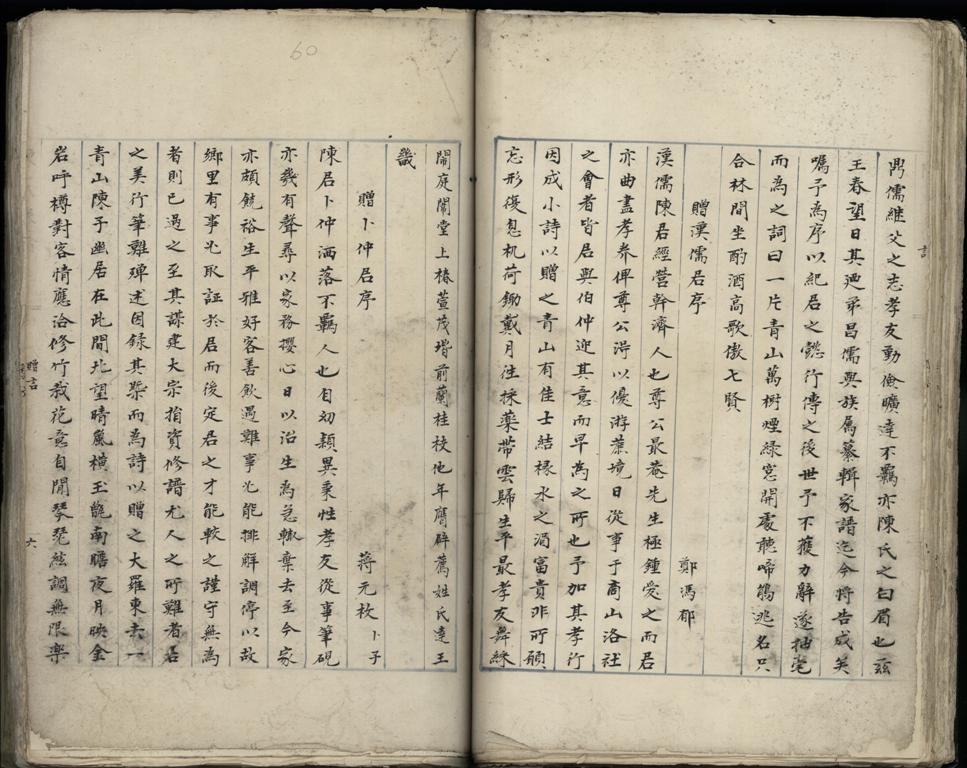 隅儒继父之志孝友勤儉曠達不羈亦陳氏之白眉也茲
王春望日其廼弟昌儒與族属纂輯家譜迄今将告成矣
嘱予為序以紀居之懿行傳之後世予不獲力辭遂抽毫
而為之詞曰一片青山萬樹煙綠窓開處聽啼鵑逃名只
合林間坐酌酒高歌傲七賢
贈漢儒居序
鄭馮郁
漢儒陳居經營幹濟人也尊公最菴先生極鍾愛之而居
亦曲盡孝养俾尊公淂以優游蔗境日從事于商山洛社
之會者皆居與伯仲迎其意而早為之所也予加其孝行
因成小詩以贈之青山有佳士結椽水之湄富貴非所願
忘形復忽机荷锄戴月往採藥带雲歸生平最孝友舞綵
鬧庭闈堂上椿萱茂堦前蘭桂枝他年膺辟薦姓氏達王
畿
贈卜仲居序
蔣元枚 卜子
陳居卜仲洒落不羈人也自幼頴異秉性孝友從事筆硯
亦幾有聲尋以家務攖心日以治生為急輙棄去至今家
亦頗饒裕生平雅好客善飲遇難事尤能排解調停以故
鄉里有事尤取証於居而後定居之才能較之謹守無為
者則已過之至其謀建大宗捐資修譜尤人之所難者居
之美行筆難殫述因録其槩而為詩以贈之大羅東去一
青山陳子幽居在此間北望晴嵐横玉㡣南瞻夜月映金
岩呼樽對客情應洽修竹栽花意自閒琴琵絃調無限樂
贈言
六
60